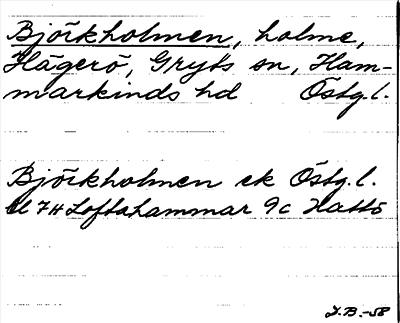 Björkholmen, holme,
Hägerö, Gryts sn, Ham-
markinds hd Östg.l.
Björkholmen ek Östg.l.
bl 7H Loftahammar 9c Hattö
J.B.-58